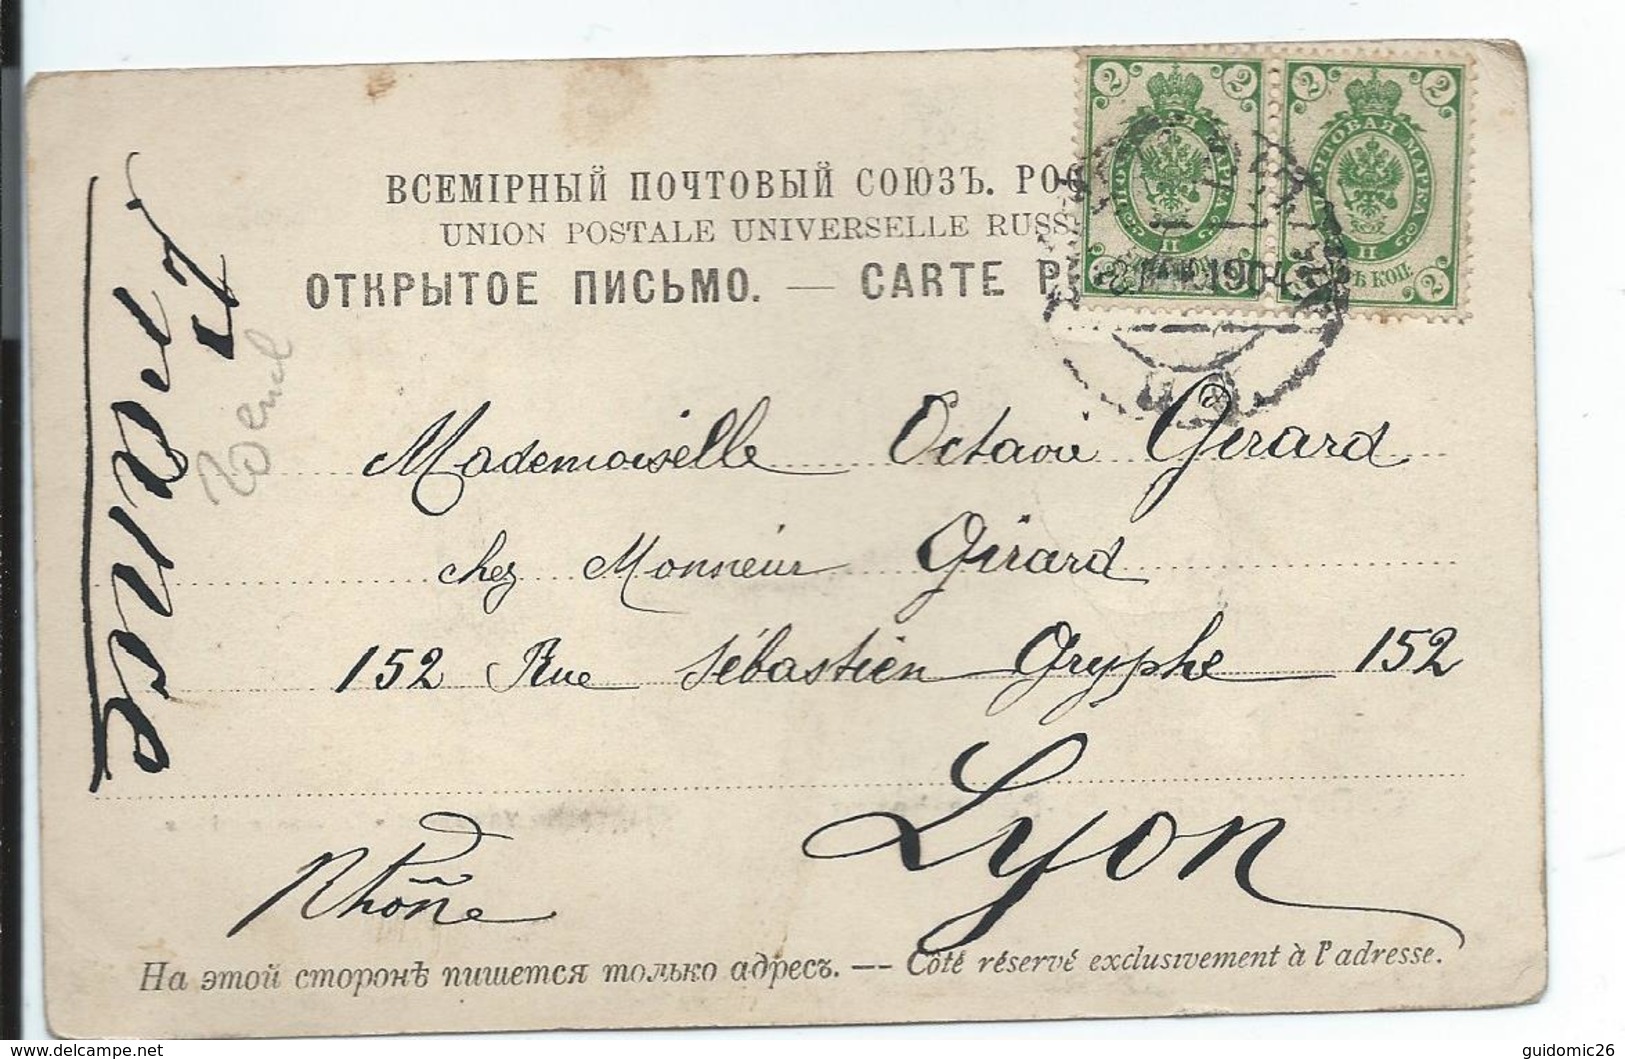 ВСЕМІРНЫЙ ПОЧТОВЫЙ СОЮЗЪ. РОС
UNION POSTALE UNIVERSELLE RUSS
ОТКРЫТОЕ ПИСЬМО. — CARTE P
2 2
2 2
ПОЧТОВАЯ МАРКА
2 КОП. 2
1904
France
Mademoiselle Octavie Girard
chez Monsieur Girard
152 Rue Sébastien Gryphe 152
Lyon
Rhône
На этой сторонѣ пишется только адресъ. — Côté réservé exclusivement à l'adresse.
delcampe.net
guidomic26